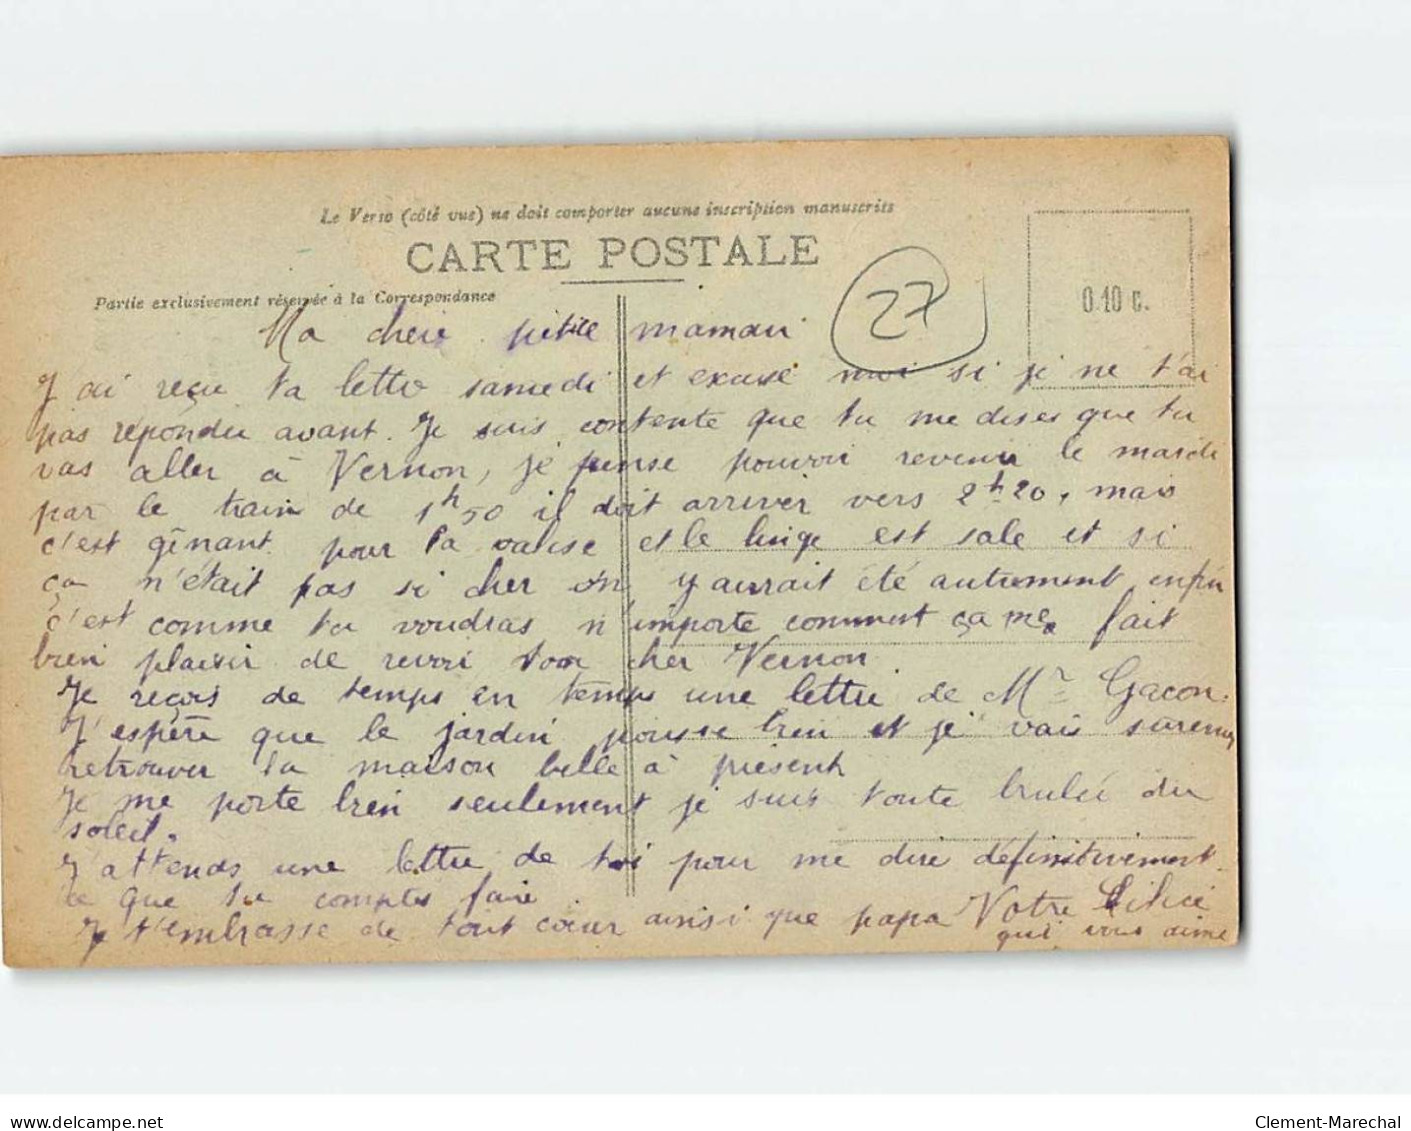 Le Verso (côté vue) ne doit comporter aucune inscription manuscrits
CARTE POSTALE
Partie exclusivement réservée à la Correspondance
27
0.10 c.
Ma cherie petite maman
J'ai reçu ta lettre samedi et excuse moi si je ne t'ai
pas répondu avant. Je suis contente que tu me dises que tu
vas aller à Vernon, je pense pouvoir revenir le mardi
par le train de 1h50 il doit arriver vers 2h20, mais
c'est gênant pour la valise et le linge est sale et si
ça n'était pas si cher on y aurait été autrement enfin
c'est comme tu voudras n'importe comment ça me fait
bien plaisir de revoir son cher Vernon
Je reçois de temps en temps une lettre de Mr Gacon.
J'espère que le jardin pousse bien et je vais surement
retrouver la maison belle à présent
Je me porte bien seulement je suis toute brulée du
soleil.
J'attends une lettre de toi pour me dire définitivement
ce que tu comptes faire
Je t'embrasse de tout cœur ainsi que papa Votre
qui vous aime
Clement-Marechal
delcampe.net